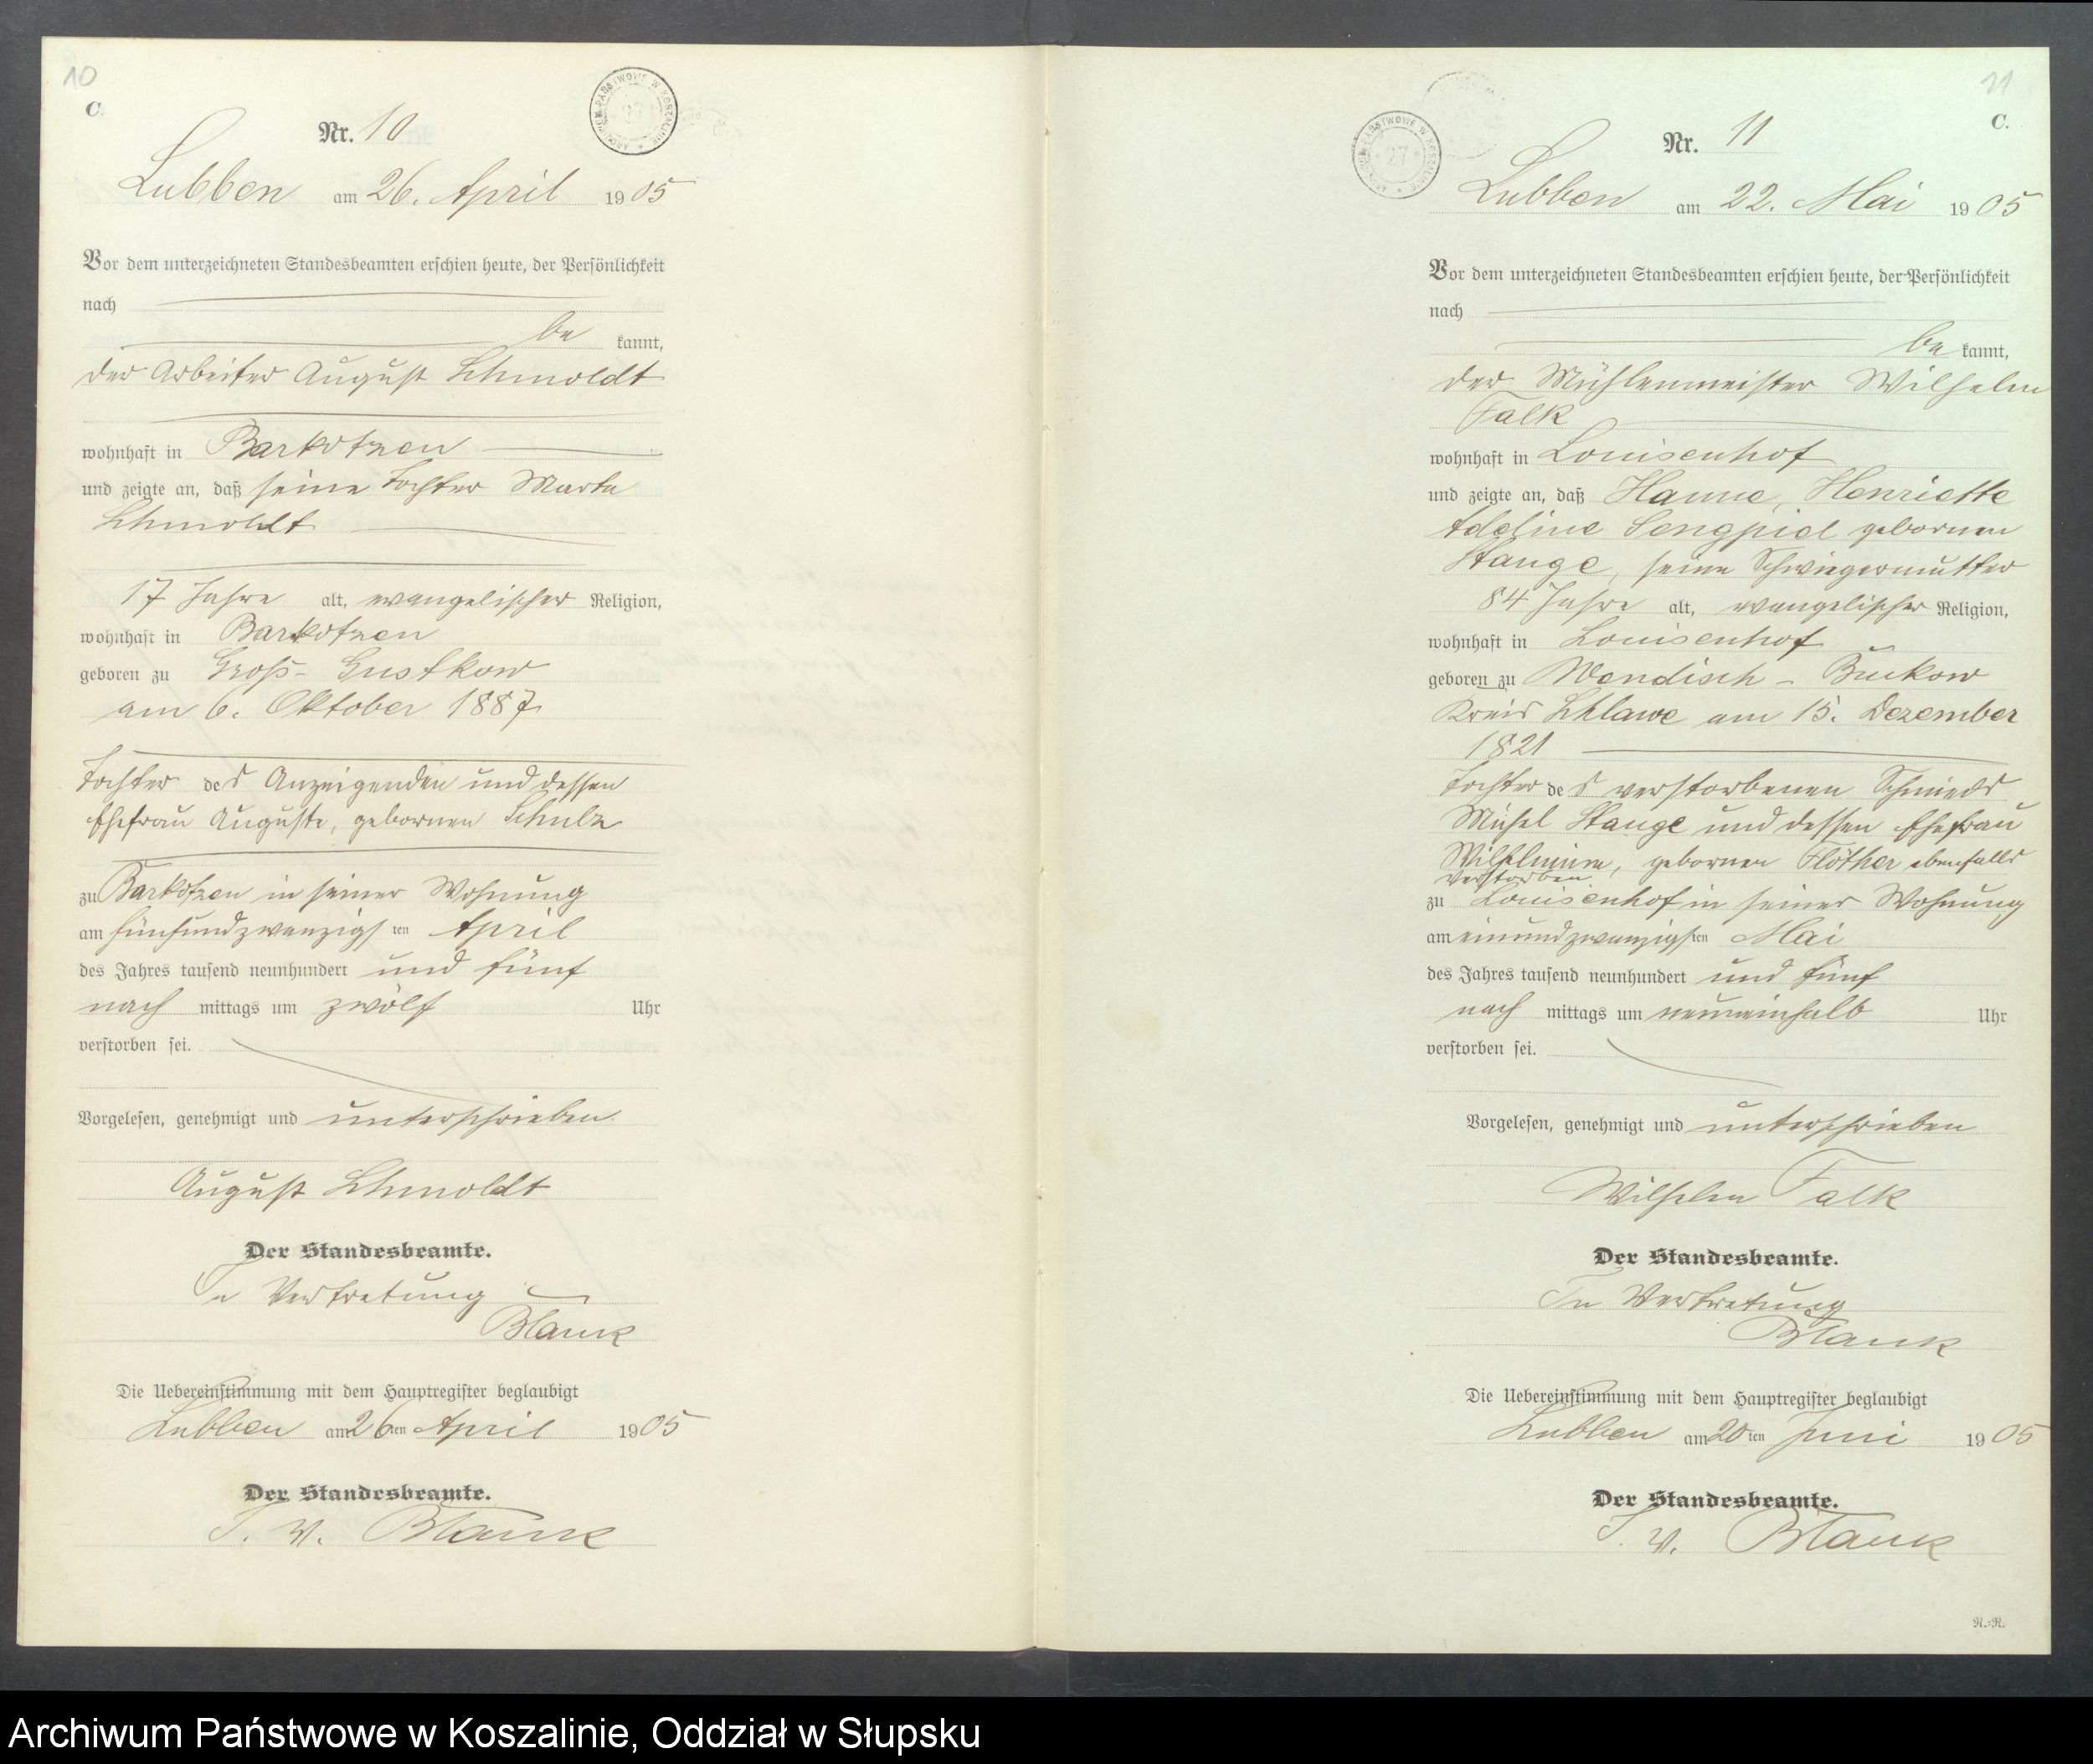 10
C.
Nr. 10
Lubben am 26. April 1905
Vor dem unterzeichneten Standesbeamten erschien heute, der Persönlichkeit
nach
be kannt,
der Arbeiter August Schmoldt
wohnhaft in Barkotzen
und zeigte an, daß seine Tochter Marta
Schmoldt
17 Jahre alt, evangelischer Religion,
wohnhaft in Barkotzen
geboren zu Groß-Gustkow
am 6. Oktober 1887
Tochter des Anzeigenden und dessen
Ehefrau Auguste, geborenen Schulz
zu Barkotzen in seiner Wohnung
am fünfundzwanzigsten April
des Jahres tausend neunhundert und fünf
nach mittags um zwölf Uhr
verstorben sei.
Vorgelesen, genehmigt und unterschrieben
August Schmoldt
Der Standesbeamte.
In Vertretung
Blank
Die Uebereinstimmung mit dem Hauptregister beglaubigt
Lubben am 26ten April 1905
Der Standesbeamte.
I. V. Blank
ARCHIWUM PAŃSTWOWE W KOSZALINIE
27
11
C.
Nr. 11
Lubben am 22. Mai 1905
Vor dem unterzeichneten Standesbeamten erschien heute, der Persönlichkeit
nach
be kannt,
der Mühlenmeister Wilhelm
Falk
wohnhaft in Louisenhof
und zeigte an, daß Hanne, Henriette
Adeline Sengpiel geborenen
Stange, seine Schwiegermutter
84 Jahre alt, evangelischer Religion,
wohnhaft in Louisenhof
geboren zu Wendisch-Buckow
Kreis Schlawe am 15. Dezember
1821
Tochter des verstorbenen Schmieds
Michel Stange und dessen Ehefrau
Wilhelmine, geborenen Flöther ebenfalls
verstorben
zu Louisenhof in seiner Wohnung
am einundzwanzigsten Mai
des Jahres tausend neunhundert und fünf
nach mittags um neuneinhalb Uhr
verstorben sei.
Vorgelesen, genehmigt und unterschrieben
Wilhelm Falk
Der Standesbeamte.
In Vertretung
Blank
Die Uebereinstimmung mit dem Hauptregister beglaubigt
Lubben am 20ten Juni 1905
Der Standesbeamte.
I. V. Blank
N.=N.
Archiwum Państwowe w Koszalinie, Oddział w Słupsku